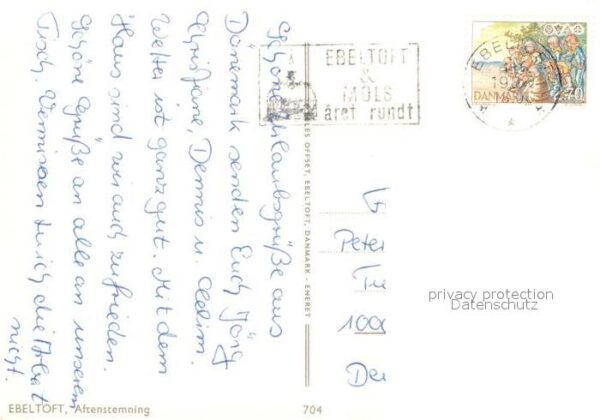 Schöne Urlaubsgrüße aus
Dänemark senden Euch Jörg
Christiane, Dennis u. Celim.
Wetter ist ganz gut. Mit dem
Haus sind wir auch zufrieden.
Schöne Grüße an alle an unserem
Tisch. Vermissen tu ich die Arbeit
nicht.
EBELTOFT
&
MOLS
året rundt
EBELTOFT
DANMARK
LES OFFSET, EBELTOFT, DANMARK - ENERET
Peter
100
privacy protection
Datenschutz
EBELTOFT, Aftenstemning
704